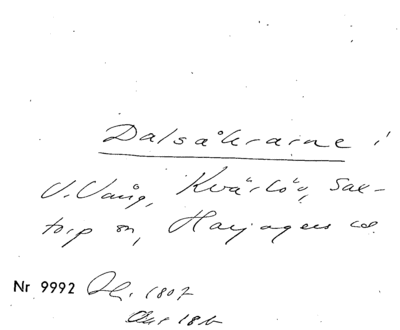 Dalsåkrarne i
V. Vång, Kvärlöv, Sax-
torp sn, Harjagers hd.
Nr 9992 Ak. 1807
Akt 18b